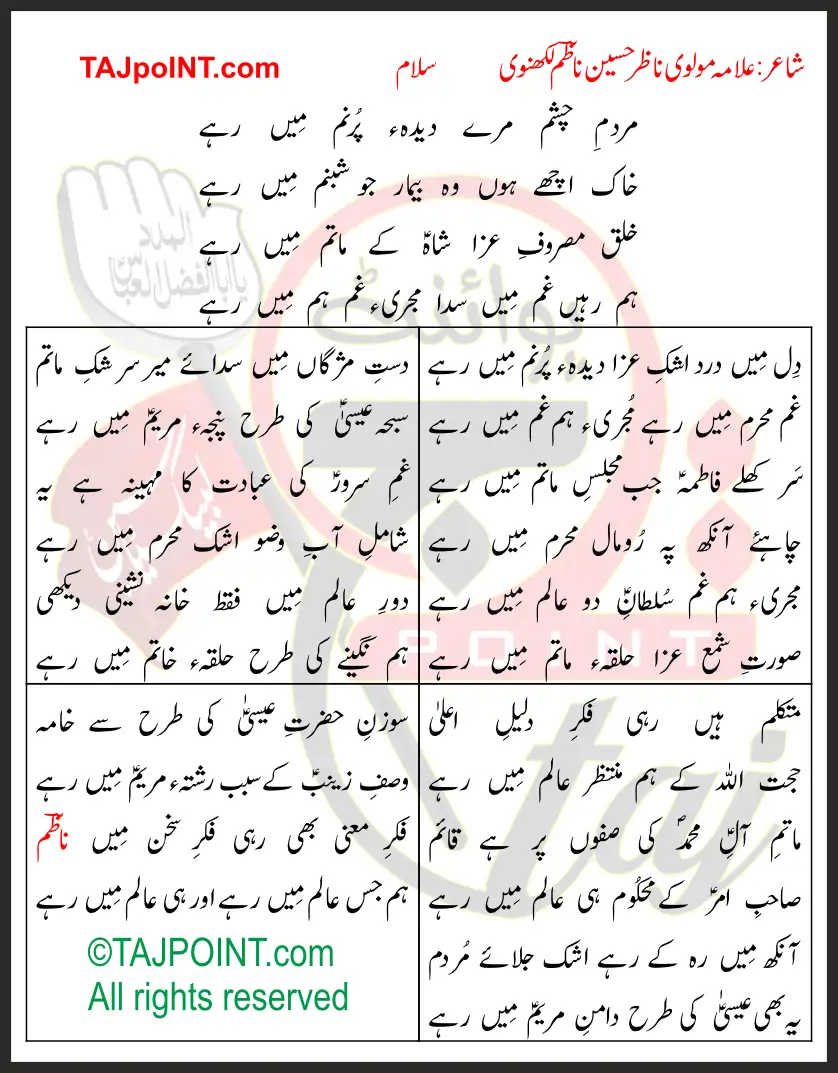 شاعر: علامہ مولوی ناظر حسین ناظمؔ لکھنوی سلام TAJpoINT.com
مردمِ چشم مرے دیدہء پُرنم مِیں رہے
خاک اچھے ہوں وہ بیمار جو شبنم مِیں رہے
خلق مصروفِ عزا شاہؑ کے ماتم مِیں رہے
ہم رہیں غم مِیں سدا مجریء غم ہم مِیں رہے
دِل مِیں درد اشکِ عزا دیدہء پُرنم مِیں رہے
غم محرم مِیں رہے مُجریء ہم غم مِیں رہے
سَر کھلے فاطمہؑ جب مجلسِ ماتم مِیں رہے
چاہئے آنکھ پہ رُومال محرم مِیں رہے
مجریء ہم غم سُلطانِؑ دو عالم مِیں رہے
صورتِ شمع عزا حلقہء ماتم مِیں رہے
دستِ مژگاں مِیں سدائے میر سرشکِ ماتم
سبحہ عیسیٰؑ کی طرح پنجہء مریمؑ مِیں رہے
غمِ سرورؑ کی عبادت کا مہینہ ہے یہ
شاملِ آبِ وضو اشک محرم مِیں رہے
دورِ عالم مِیں فقط خانہ نشینی دیکھی
ہم نگینے کی طرح حلقہء خاتم مِیں رہے
متکلم ہیں رہی فکرِ دلیلِ اعلیٰ
حجت اللہ کے ہم منتظر عالم مِیں رہے
ماتمِ آلِ محمدؐ کی صفوں پر ہے قائم
صاحبِ امرؑ کے محکُوم ہی عالم مِیں رہے
آنکھ مِیں رہ کے رہے اشک جلائے مُردم
یہ بھی عیسیٰؑ کی طرح دامنِ مریمؑ مِیں رہے
سوزنِ حضرتِ عیسیٰؑ کی طرح سے خامہ
وصفِ زینبؑ کے سبب رشتہء مریمؑ مِیں رہے
فکرِ معنی بھی رہی فکرِ سخن مِیں ناظمؔ
ہم جس عالم مِیں رہے اور ہی عالم مِیں رہے
©TAJPOINT.com
All rights reserved
پوائنٹ
تاج
POINT
taj
البلد
یا ابا الفضل العباس
لبیک یا حسین